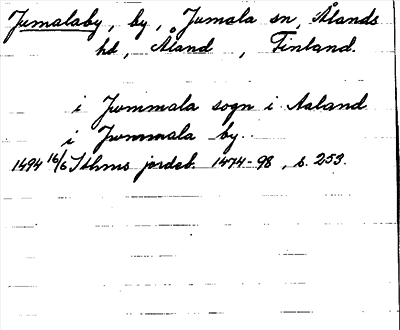 Jumalaby, by, Jumala sn, Ålands
hd, Åland, Finland.
i Jummala sogn i Aaland
i Jummala by.
1494 16/6 Sthms jordeb. 1474-98, s. 253.